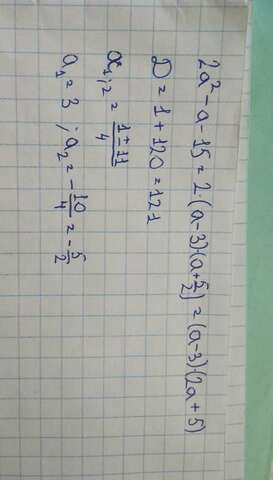 2a² - a - 15 = 2·(a-3)·(a+5/2) = (a-3)·(2a+5)
D = 1 + 120 = 121
a₁;₂ = (1±11)/4
a₁ = 3 ; a₂ = -10/4 = -5/2